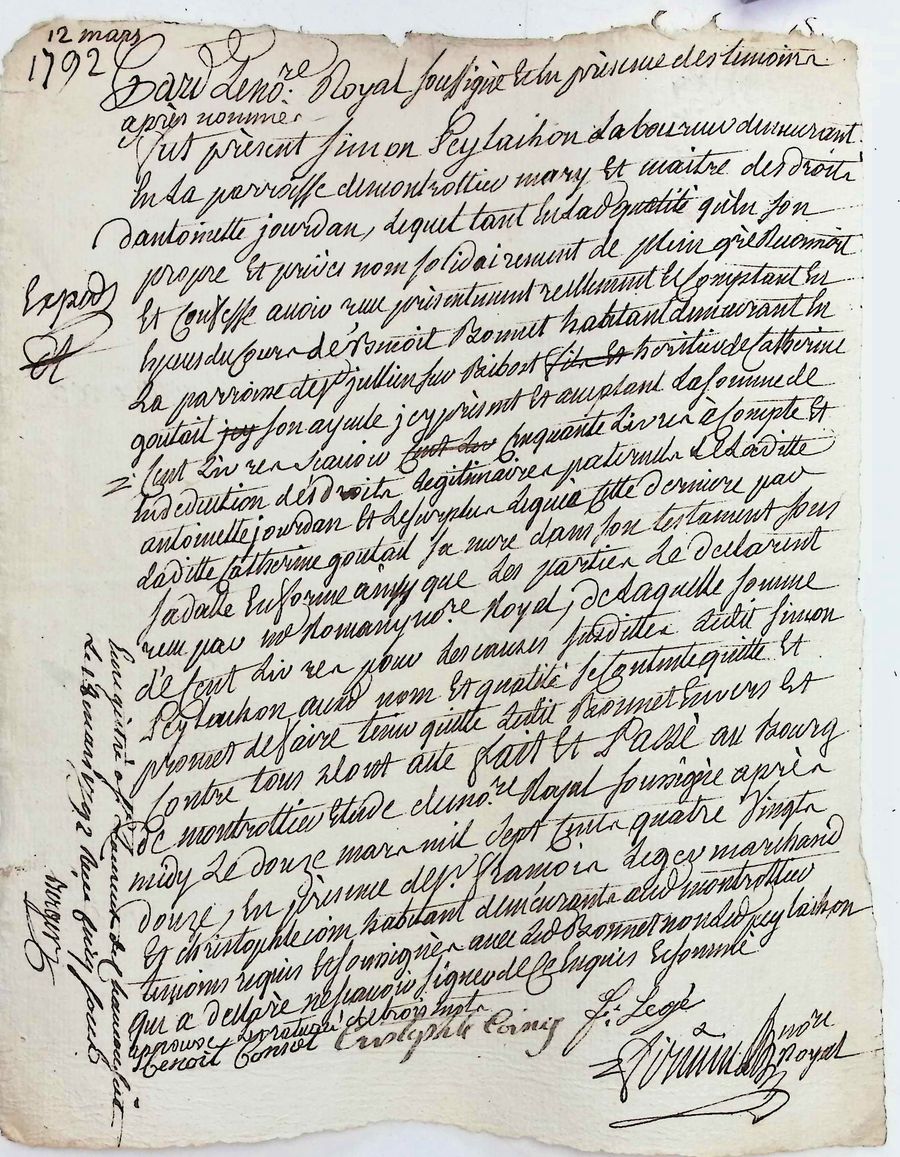 12 mars
1792
Pardt. Le nore. Royal soussigné et en présence des témoins
après nommés
fut présent Simon Peylachon laboureur demeurant
en la parroisse de montrottier mary et maitre des droits
dantoinette jourdan, lequel tant en lad qualité qu'en son
propre et privés nom solidairement de plein gré reconnoit
Expedé
et confesse avoir reçu présentement réellement et comptant en
espèces du cours de Benoit Bonnet habitant demeurant en
la parroisse de st jullien sur Bibost fils et heritier de Catherine
goutail jcy son ayeule jcy présent et acceptant la somme de
Cent Livres scavoir Cent Liv Cinquante Livres à compte et
en deduction des droits legitimaires paternels de laditte
antoinette jourdan et le surplus cette derniere par
laditte Catherine goutail sa mere dans son testament sous
sa datte en forme ainsy que les parties le déclarent
reçu par me Romany nore Royal, de laquelle somme
de Cent Livres pour les causes susdittes ledit Simon
Peylachon aud nom et qualité se contente quitte et
promet de faire tenir quitte ledit Bonnet Envers et
Contre tous dont acte fait et Passé au Bourg
de montrottier etude de nore Royal soussigné après
midy le douze mars mil sept cents quatre vingts
douze, en présence de sr. francois Leger marchand
et christophle coin habitant demeurants aud montrottier
témoins requis et soussignés avec led Bonnet non led peylachon
qui a déllaré ne scavoir signer de ce Enquis et sommé
approuvé la rature de trois mots
Benoit Bonset Cristophle Coing fs. Legé
nore
Royal
Enregistré à st Laurent de chamousset
le mars 1792 Reçu sols